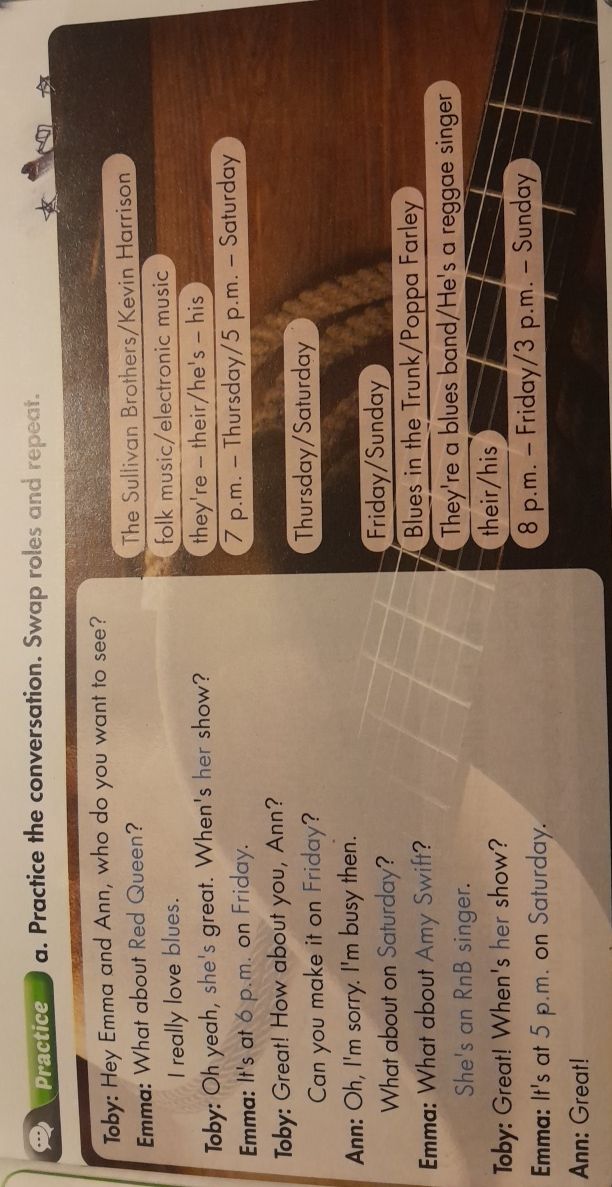 Practice
a. Practice the conversation. Swap roles and repeat.
Toby: Hey Emma and Ann, who do you want to see?
Emma: What about Red Queen?
I really love blues.
Toby: Oh yeah, she's great. When's her show?
Emma: It's at 6 p.m. on Friday.
Toby: Great! How about you, Ann?
Can you make it on Friday?
Ann: Oh, I'm sorry. I'm busy then.
What about on Saturday?
Emma: What about Amy Swift?
She's an RnB singer.
Toby: Great! When's her show?
Emma: It's at 5 p.m. on Saturday.
Ann: Great!
The Sullivan Brothers/Kevin Harrison
folk music/electronic music
they're – their/he's – his
7 p.m. – Thursday/5 p.m. – Saturday
Thursday/Saturday
Friday/Sunday
Blues in the Trunk/Poppa Farley
They're a blues band/He's a reggae singer
their/his
8 p.m. – Friday/3 p.m. – Sunday